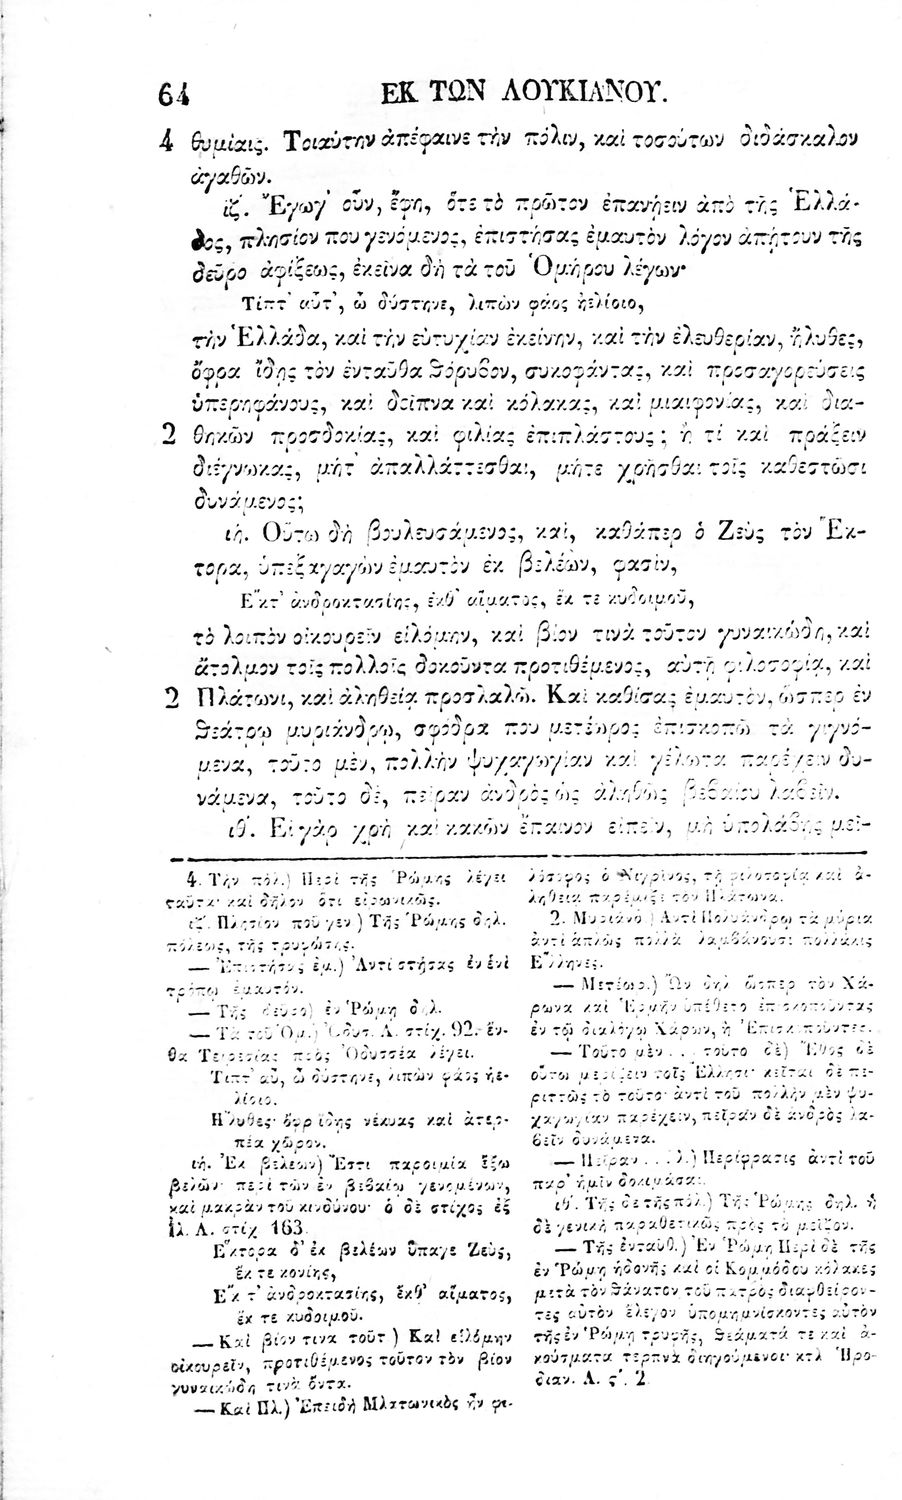 64 ΕΚ ΤΩΝ ΛΟΥΚΙΑΝΟΥ.
4 θυμίαις. Τοιαύτην ἀπέφαινε τὴν πόλιν, καὶ τοσούτων διδάσκαλον
ἀγαθῶν.
ιζ'. Ἔγωγ' οὖν, ἔφη, ὅτε τὸ πρῶτον ἐπανῄειν ἀπὸ τῆς Ἑλλά-
δος, πλησίον που γενόμενος, ἐπιστήσας ἐμαυτὸν λόγον ἀπῄτουν τῆς
δεῦρο ἀφίξεως, ἐκεῖνα δὴ τὰ τοῦ Ὁμήρου λέγων·
Τίπτ' αὖτ', ὦ δύστηνε, λιπὼν φάος ἠελίοιο,
τὴν Ἑλλάδα, καὶ τὴν εὐτυχίαν ἐκείνην, καὶ τὴν ἐλευθερίαν, ἤλυθες,
ὄφρα ἴδῃς τὸν ἐνταῦθα θόρυβον, συκοφάντας, καὶ προσαγορεύσεις
ὑπερηφάνους, καὶ δεῖπνα καὶ κόλακας, καὶ μιαιφονίας, καὶ δια-
2 θηκῶν προσδοκίας, καὶ φιλίας ἐπιπλάστους; ἢ τί καὶ πράξειν
διέγνωκας, μήτ' ἀπαλλάττεσθαι, μήτε χρῆσθαι τοῖς καθεστῶσι
δυνάμενος;
ιή. Οὕτω δὴ βουλευσάμενος, καὶ, καθάπερ ὁ Ζεὺς τὸν Ἕκ-
τορα, ὑπεξαγαγὼν ἐμαυτὸν ἐκ βελέων, φασὶν,
Ἔκτ' ἀνδροκτασίης, ἐκθ' αἵματος, ἔκ τε κυδοιμοῦ,
τὸ λοιπὸν οἰκουρεῖν εἱλόμην, καὶ βίον τινὰ τοῦτον γυναικώδη, καὶ
ἄτολμον τοῖς πολλοῖς δοκοῦντα προτιθέμενος, αὐτῇ φιλοσοφίᾳ, καὶ
2 Πλάτωνι, καὶ ἀληθείᾳ προσλαλῶ. Καὶ καθίσας ἐμαυτὸν, ὥσπερ ἐν
θεάτρῳ μυριάνδρῳ, σφόδρα που μετέωρος ἐπισκοπῶ τὰ γιγνό-
μενα, τοῦτο μὲν, πολλὴν ψυχαγωγίαν καὶ γέλωτα παρέχειν δυ-
νάμενα, τοῦτο δὲ, πεῖραν ἀνδρὸς ὡς ἀληθῶς βεβαίου λαβεῖν.
ιθ'. Εἰ γὰρ χρὴ καὶ κακῶν ἔπαινον εἰπεῖν, μὴ ὑπολάβῃς μεῖ-
4. Τὴν πόλ.) Περὶ τῆς Ῥώμης λέγει
ταῦτα· καὶ δῆλον ὅτι εἰρωνικῶς.
ιζ'. Πλησίον ποῦ γεν) Τῆς Ῥώμης δηλ.
πόλεως, τῆς τρυφώσης.
— Ἐπιστήσας ἐμ.) Ἀντὶ στήσας ἐν ἑνὶ
τρόπῳ ἐμαυτόν.
— Τῆς δεῦρο) ἐν Ῥώμῃ δηλ.
— Τὰ τοῦ Ὁμ.) Ὀδυσ. Λ. στίχ. 92. ἔν-
θα Τειρεσίας πρὸς Ὀδυσσέα λέγει.
Τίπτ' αὖ, ὦ δύστηνε, λιπὼν φάος ἠε-
λίοιο.
Ἤλυθες· ὄφρ' ἴδῃς νέκυας καὶ ἀτερ-
πέα χῶρον.
ιή. Ἐκ βελέων) Ἔστι παροιμία ἔξω
βελῶν· περὶ τῶν ἐν βεβαίῳ γενομένων,
καὶ μακρὰν τοῦ κινδύνου· ὁ δὲ στίχος ἐξ
Ιλ. Λ. στίχ 163.
Ἕκτορα δ' ἐκ βελέων ὕπαγε Ζεὺς,
ἔκ τε κονίης,
Ἔκ τ' ἀνδροκτασίης, ἔκθ' αἵματος,
ἔκ τε κυδοιμοῦ.
— Καὶ βίον τινα τοῦτ ) Καὶ εἱλόμην
οἰκουρεῖν, προτιθέμενος τοῦτον τὸν βίον
γυναικώδη τινὰ ὄντα.
— Καὶ Πλ.) Ἐπειδὴ Πλατωνικὸς ἦν φι-
λόσοφος ὁ Νιγρῖνος, τῇ φιλοσοφίᾳ καὶ ἀ-
ληθείᾳ παρέμιξε τὸν Πλάτωνα.
2. Μυριάνδ.) Ἀντὶ Πολυάνδρῳ τὰ μύρια
ἀντὶ ἁπλῶς πολλὰ λαμβάνουσι πολλάκις
Ἕλληνες.
— Μετέωρ.) Ὢν δηλ ὥσπερ τὸν Χά-
ρωνα καὶ Ἑρμῆν ὑπέθετο ἐπισκοποῦντας
ἐν τῷ διαλόγῳ Χάρων, ἢ Ἐπισκοποῦντες.
— Τοῦτο μὲν . . . τοῦτο δὲ) Ἔθος δὲ
οὕτω μερίζειν τοῖς Ἕλλησι· κεῖται δὲ πε-
ριττῶς τὸ τοῦτο· ἀντὶ τοῦ πολλὴν μὲν ψυ-
χαγωγίαν παρέχειν, πεῖραν δὲ ἀνδρὸς λα-
βεῖν δυνάμενα.
— Πεῖραν . . . λ.) Περίφρασις ἀντὶ τοῦ
παρ' ἡμῖν δοκιμάσαι.
ιθ'. Τῆς δὲ τῆς πόλ.) Τῆς Ῥώμης δηλ. ἡ
δὲ γενικὴ παραθετικῶς πρὸς τὸ μεῖζον.
— Τῆς ἐνταῦθ.) Ἐν Ῥώμῃ Περὶ δὲ τῆς
ἐν Ῥώμῃ ἡδονῆς καὶ οἱ Κομμόδου κόλακες
μετὰ τὸν θάνατον τοῦ πατρὸς διαφθείρον-
τες αὐτὸν ἔλεγον ὑπομιμνίσκοντες αὐτὸν
τῆς ἐν Ῥώμῃ τρυφῆς, θεάματά τε καὶ ἀ-
κούσματα τερπνὰ διηγούμενοι· κτλ Ἡρο-
διαν. Α. ς'. 2